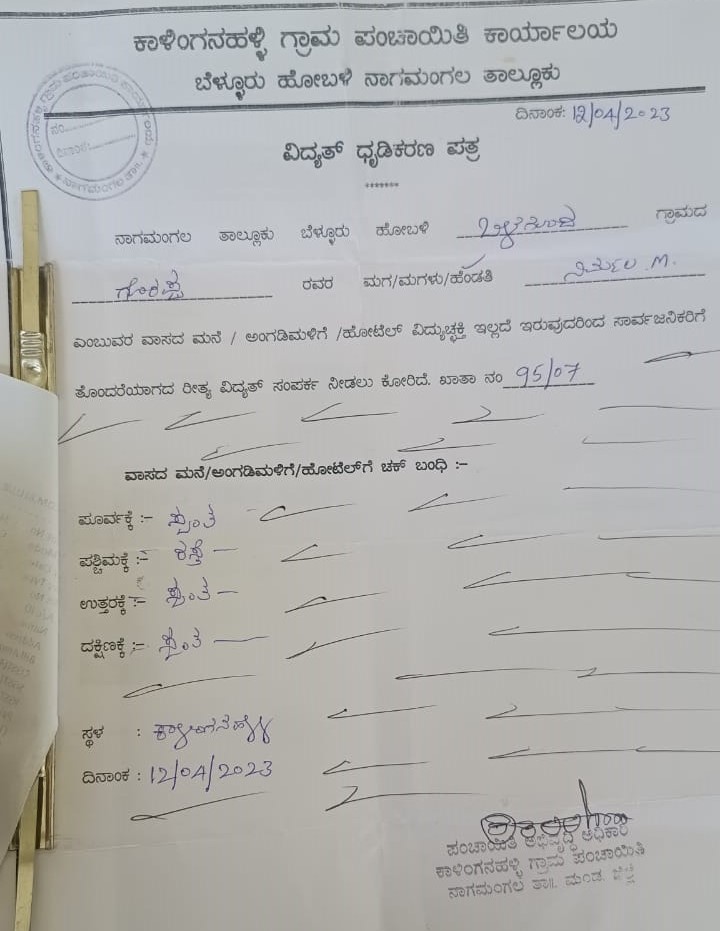 ಕಾಳಿಂಗನಹಳ್ಳಿ ಗ್ರಾಮ ಪಂಚಾಯಿತಿ ಕಾರ್ಯಾಲಯ
ಬೆಳ್ಳೂರು ಹೋಬಳಿ ನಾಗಮಂಗಲ ತಾಲ್ಲೂಕು
ದಿನಾಂಕ: 12/04/2023
ವಿದ್ಯತ್ ಧೃಡಿಕರಣ ಪತ್ರ
*******
ನಾಗಮಂಗಲ ತಾಲ್ಲೂಕು ಬೆಳ್ಳೂರು ಹೋಬಳಿ ಗ್ರಾಮದ
ರವರ ಮಗ/ಮಗಳು/ಹೆಂಡತಿ ನಿರ್ಮಲ .M.
ಎಂಬುವರ ವಾಸದ ಮನೆ / ಅಂಗಡಿಮಳಿಗೆ /ಹೋಟೆಲ್ ವಿದ್ಯುಚ್ಛಕ್ತಿ ಇಲ್ಲದೆ ಇರುವುದರಿಂದ ಸಾರ್ವಜನಿಕರಿಗೆ
ತೊಂದರೆಯಾಗದ ರೀತ್ಯ ವಿದ್ಯತ್ ಸಂಪರ್ಕ ನೀಡಲು ಕೋರಿದೆ. ಖಾತಾ ನಂ 95/07
ವಾಸದ ಮನೆ/ಅಂಗಡಿಮಳಿಗೆ/ಹೋಟೆಲ್‌ಗೆ ಚಕ್ ಬಂಧಿ :-
ಪೂರ್ವಕ್ಕೆ :- ಸ್ವಂತ
ಪಶ್ಚಿಮಕ್ಕೆ :- ರಸ್ತೆ
ಉತ್ತರಕ್ಕೆ :- ಸ್ವಂತ
ದಕ್ಷಿಣಕ್ಕೆ :- ಸ್ವಂತ
ಸ್ಥಳ : ಕಾಳಿಂಗನಹಳ್ಳಿ
ದಿನಾಂಕ : 12/04/2023
ಪಂಚಾಯಿತಿ ಅಭಿವೃದ್ಧಿ ಅಧಿಕಾರಿ
ಕಾಳಿಂಗನಹಳ್ಳಿ ಗ್ರಾಮ ಪಂಚಾಯಿತಿ
ನಾಗಮಂಗಲ ತಾ||. ಮಂಡ್ಯ ಜಿಲ್ಲೆ